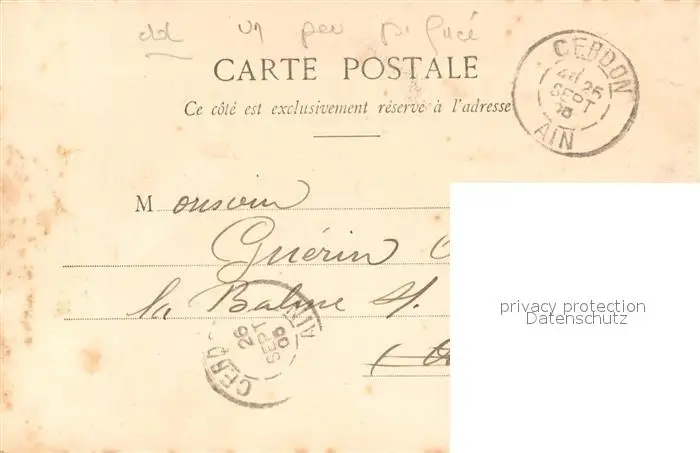 un peu piqué
CARTE POSTALE
Ce côté est exclusivement réservé à l'adresse
CERDON
25
SEPT
AIN
Monsieur
Guérin
la Balme s/
CERDON
AIN
26
SEPT
05
privacy protection
Datenschutz